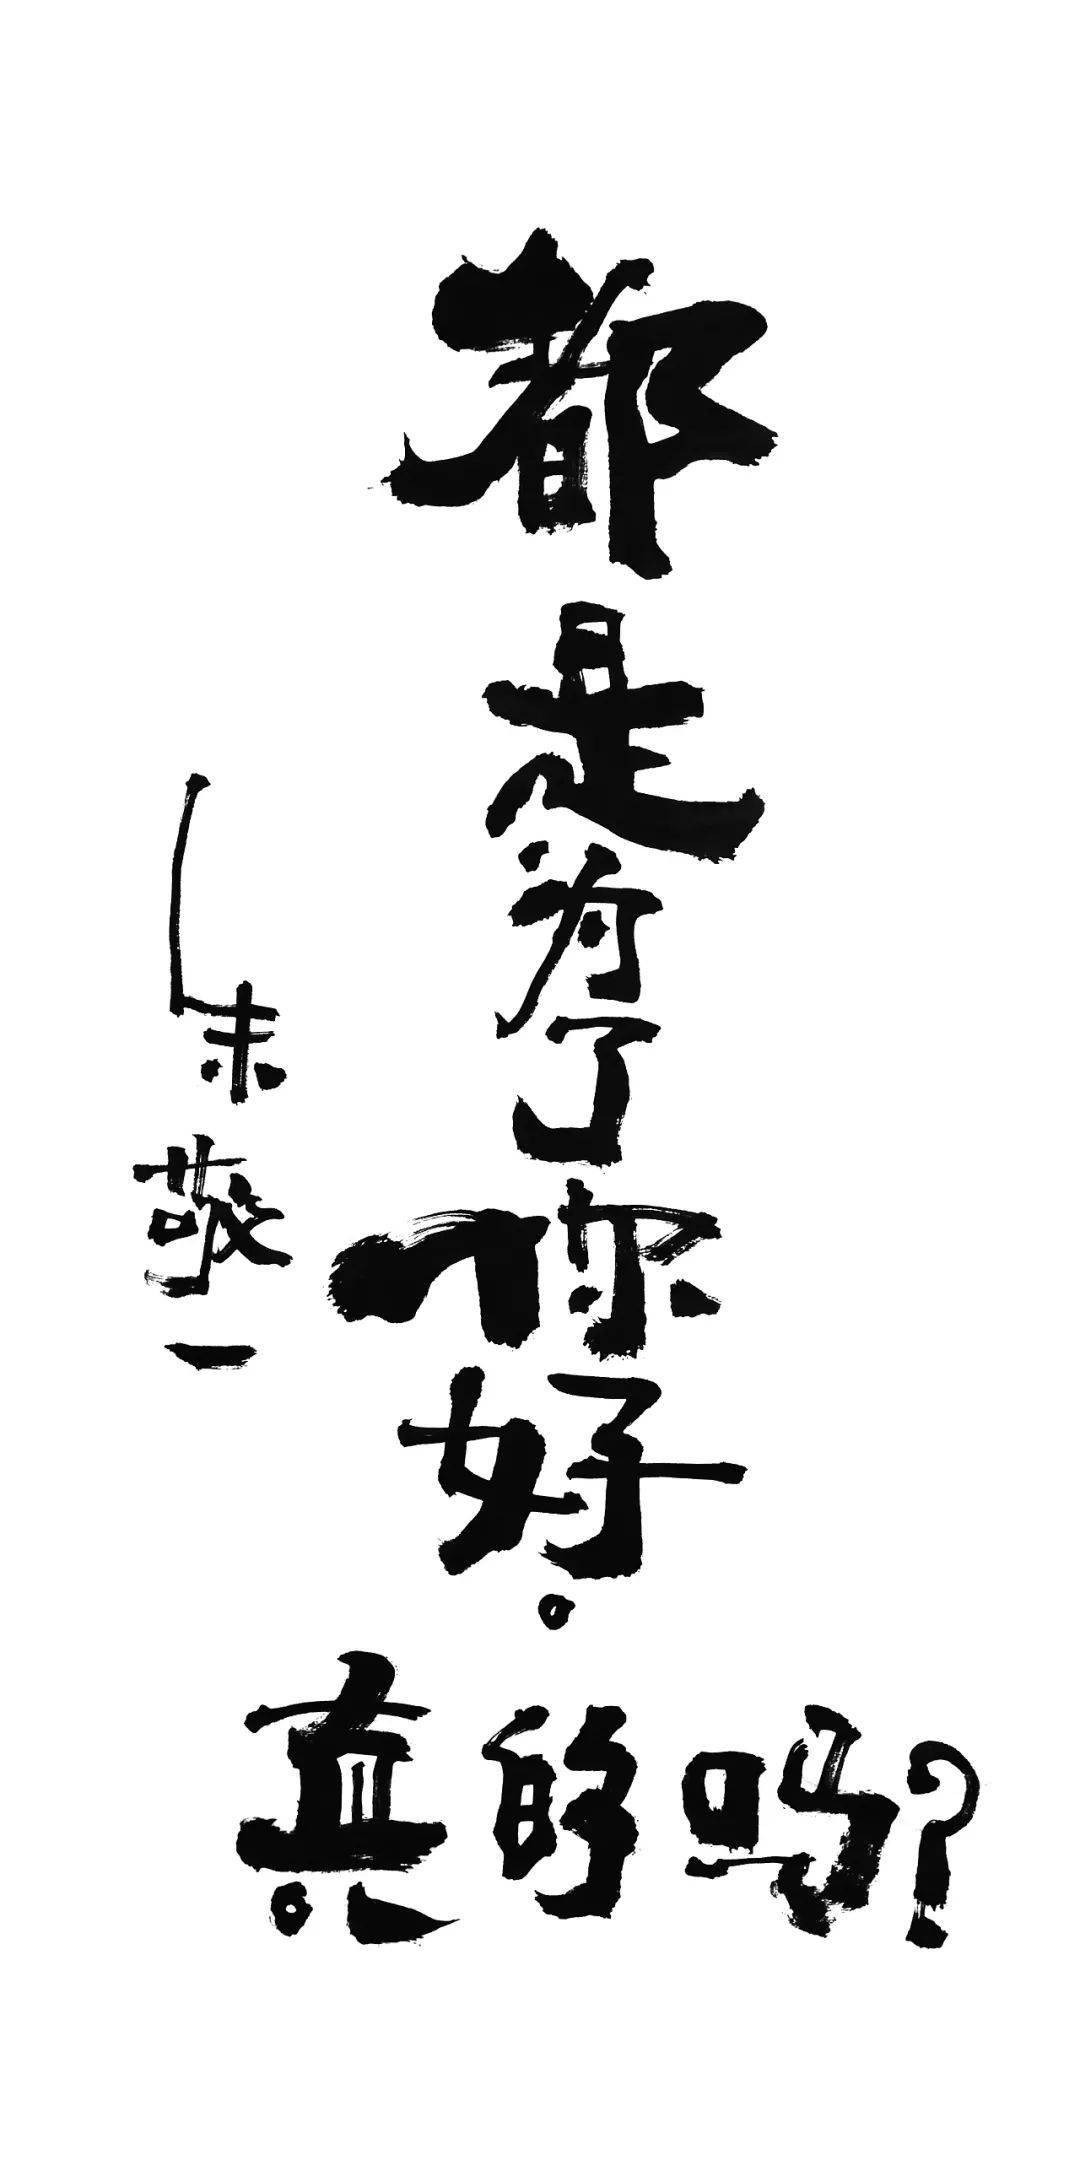 都是为了你好。
真的吗?
朱敬一